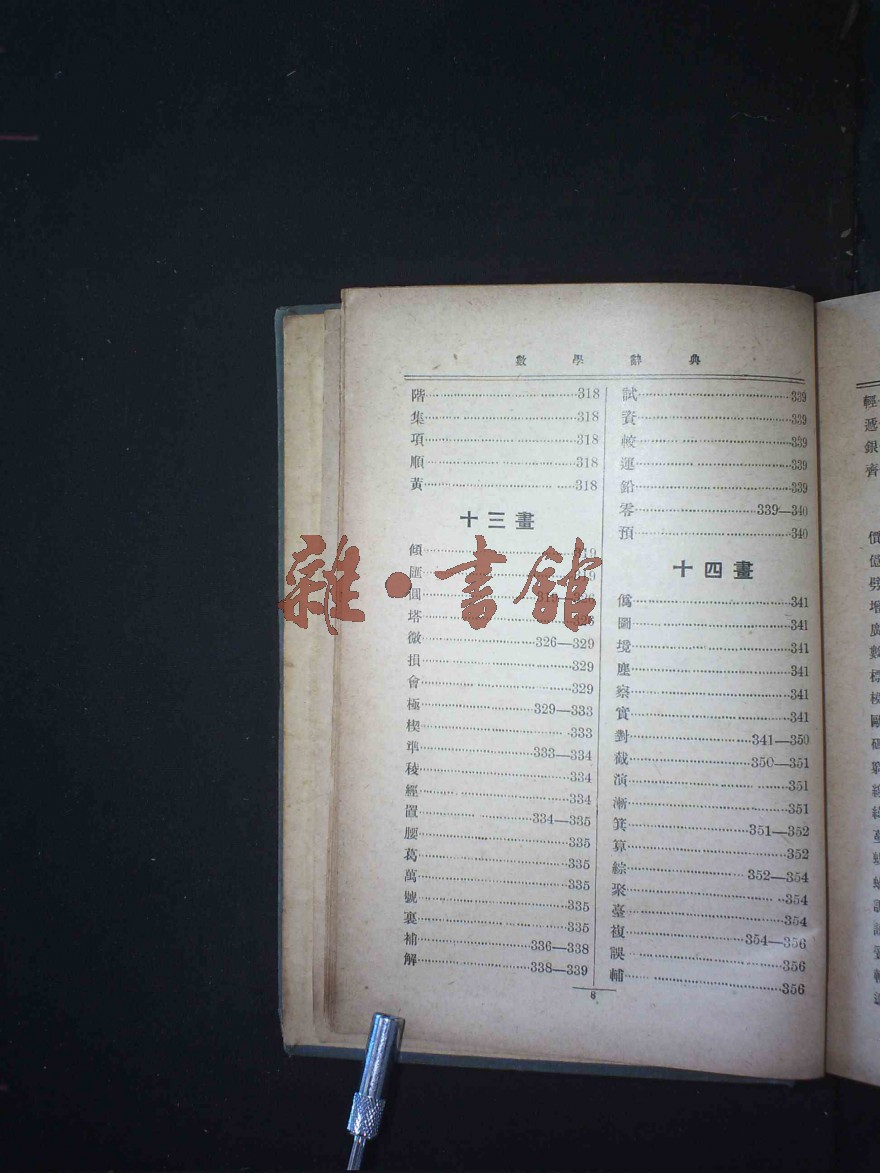 數學辭典
階……318
集……318
項……318
順……318
黃……318
十三畫
傾……319
匯……319
圓……
塔……
微……326—329
損……329
會……329
極……329—333
楔……333
準……333—334
稜……334
經……334
置……334—335
腰……335
葛……335
萬……335
號……335
裏……335
補……336—338
解……338—339
試……339
資……339
較……339
運……339
鉛……339
零……339—340
預……340
十四畫
僞……341
圖……341
境……341
塵……341
察……341
實……341
對……341—350
截……350—351
演……351
漸……351
箕……351—352
算……352
綜……352—354
聚……354
臺……354
複……354—356
誤……356
輔……356
8
輕
遞
銀
齊
價
億
劈
增
廣
數
標
雜·書館